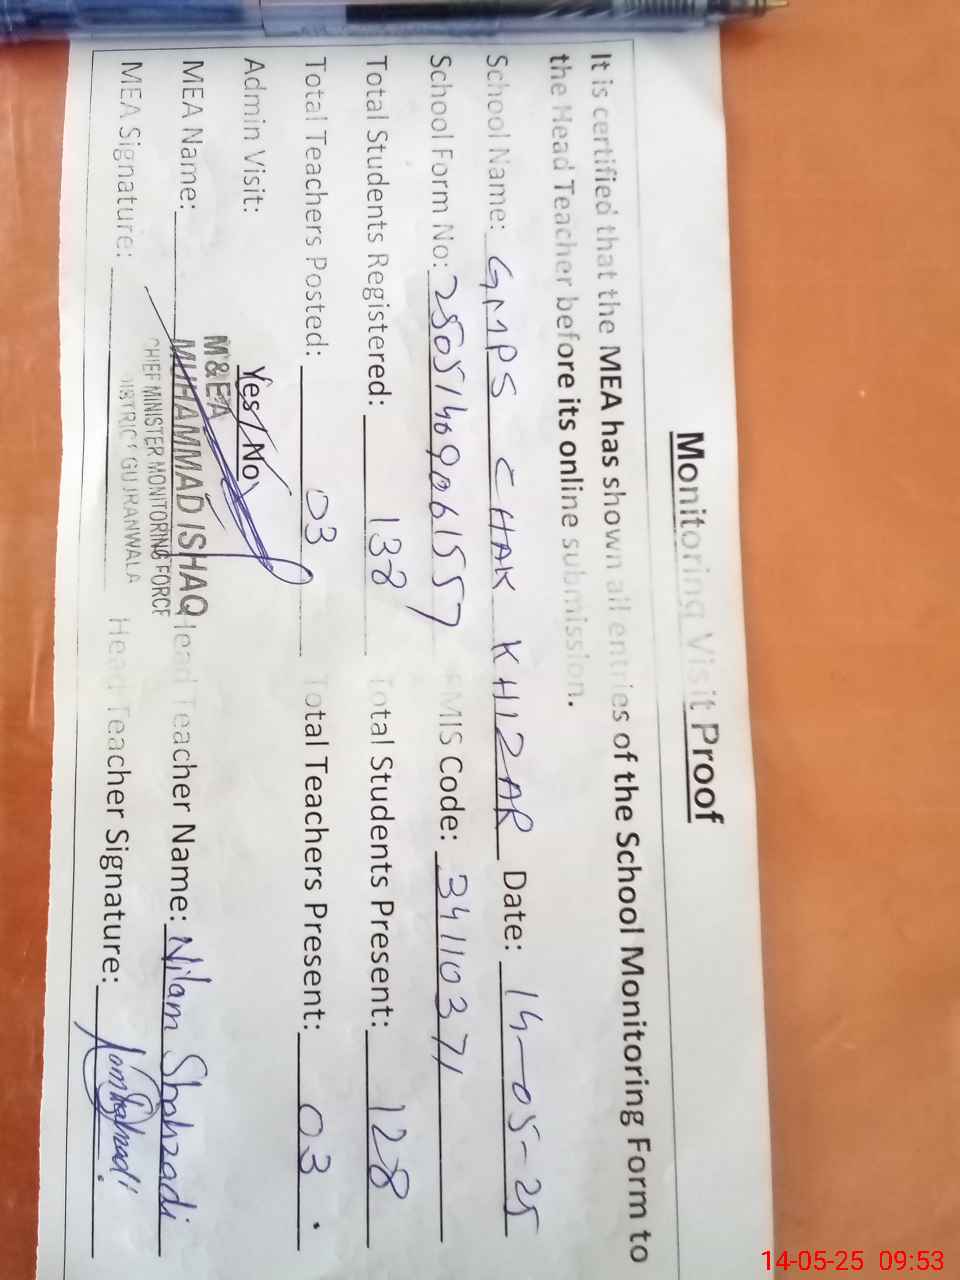 Monitoring Visit Proof
It is certified that the MEA has shown all entries of the School Monitoring Form to
the Head Teacher before its online submission.
School Name: GMPS CHAK KHIZAR Date: 14-05-25
School Form No: 25051409061557 EMIS Code: 34110371
Total Students Registered: 138 Total Students Present: 128
Total Teachers Posted: 03 Total Teachers Present: 03
Admin Visit: Yes / No
M&EA
MEA Name: MUHAMMAD ISHAQ Head Teacher Name: Nilam Shahzadi
CHIEF MINISTER MONITORING FORCE
MEA Signature: DISTRICT GUJRANWALA Head Teacher Signature:
14-05-25 09:53